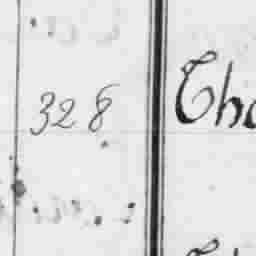 328 Tho